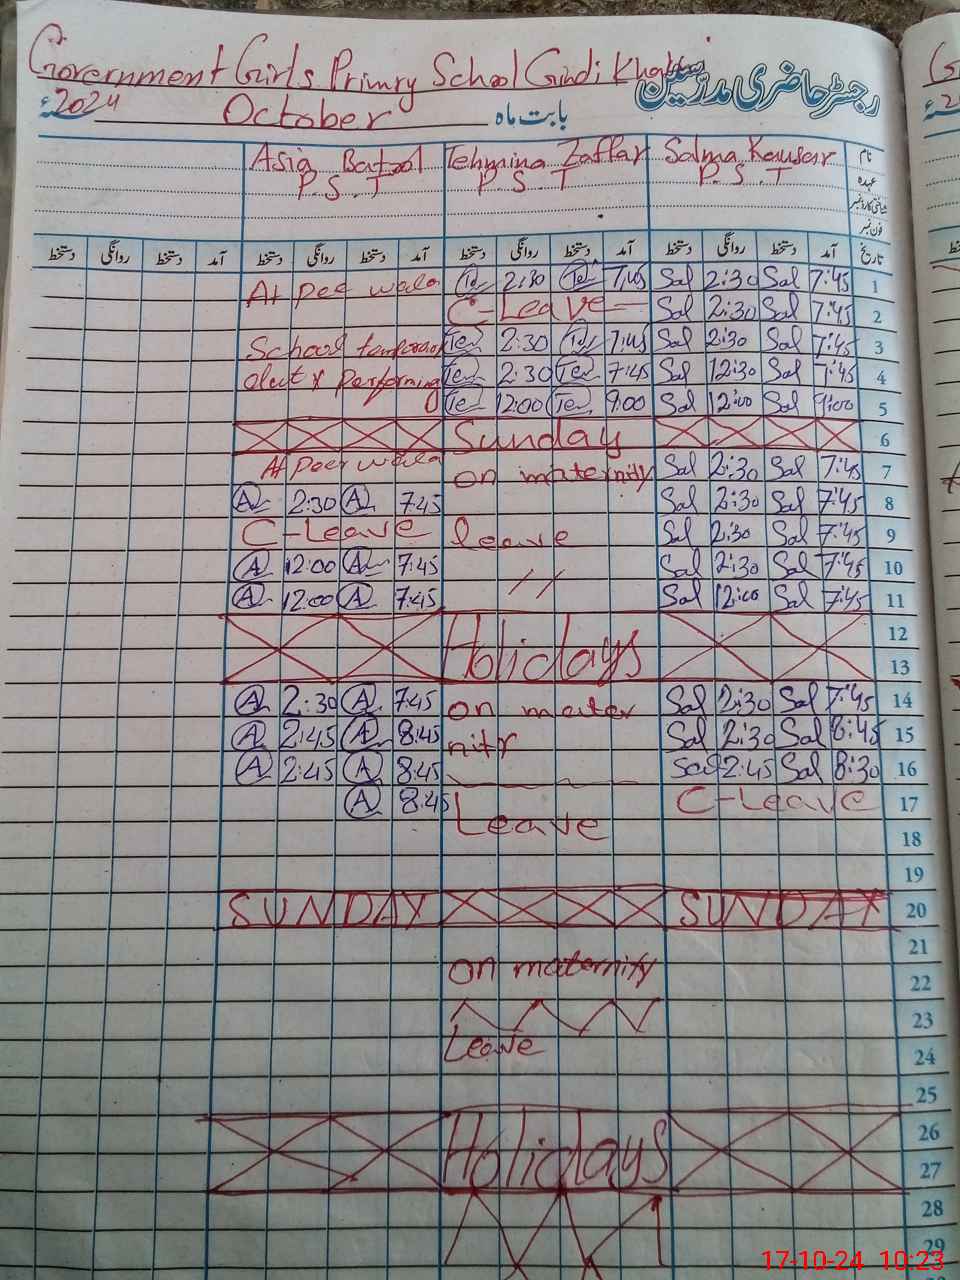 Government Girls Primry School Gindi Khakh
رجسٹر حاضری مدرسین
2024ء October بابت ماہ
Asia Batool Tehmina Zaffar Salma Kausar نام
P.S.T P.S.T P.S.T عہدہ
شناختی کارڈ نمبر
فون نمبر
دستخط روانگی دستخط آمد دستخط روانگی دستخط آمد دستخط روانگی دستخط آمد دستخط روانگی دستخط آمد تاریخ
At peer wala Te 2:30 Te 7:45 Sal 2:30 Sal 7:45 1
C-Leave Sal 2:30 Sal 7:45 2
School Te 2:30 Te 7:45 Sal 2:30 Sal 7:45 3
performing Te 2:30 Te 7:45 Sal 12:30 Sal 7:45 4
Te 12:00 Te 9:00 Sal 12:00 Sal 9:00 5
Sunday 6
At peer wala on maternity Sal 2:30 Sal 7:45 7
A 2:30 A 7:45 Sal 2:30 Sal 7:45 8
C-Leave leave Sal 2:30 Sal 7:45 9
A 12:00 A 7:45 // Sal 2:30 Sal 7:45 10
A 12:00 A 7:45 Sal 12:00 Sal 7:45 11
Holidays 12
13
A 2:30 A 7:45 on mater Sal 2:30 Sal 7:45 14
A 2:45 A 8:45 nity Sal 2:30 Sal 8:45 15
A 2:45 A 8:45 Sal 2:45 Sal 8:30 16
A 8:45 Leave C-Leave 17
18
19
SUNDAY SUNDAY 20
21
on maternity 22
23
Leave 24
25
Holidays 26
27
28
29
17-10-24 10:23